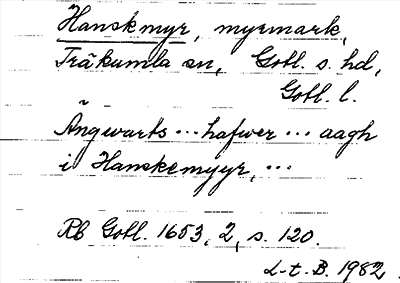 Hanskmyr, myrmark,
Träkumla sn, Gotl. s. hd,
Gotl. l.
Ängwarts ... hafwer ... aagh
i Hanskemyyr, ...
Rb Gotl. 1653, 2, s. 120.
L-t. B. 1982